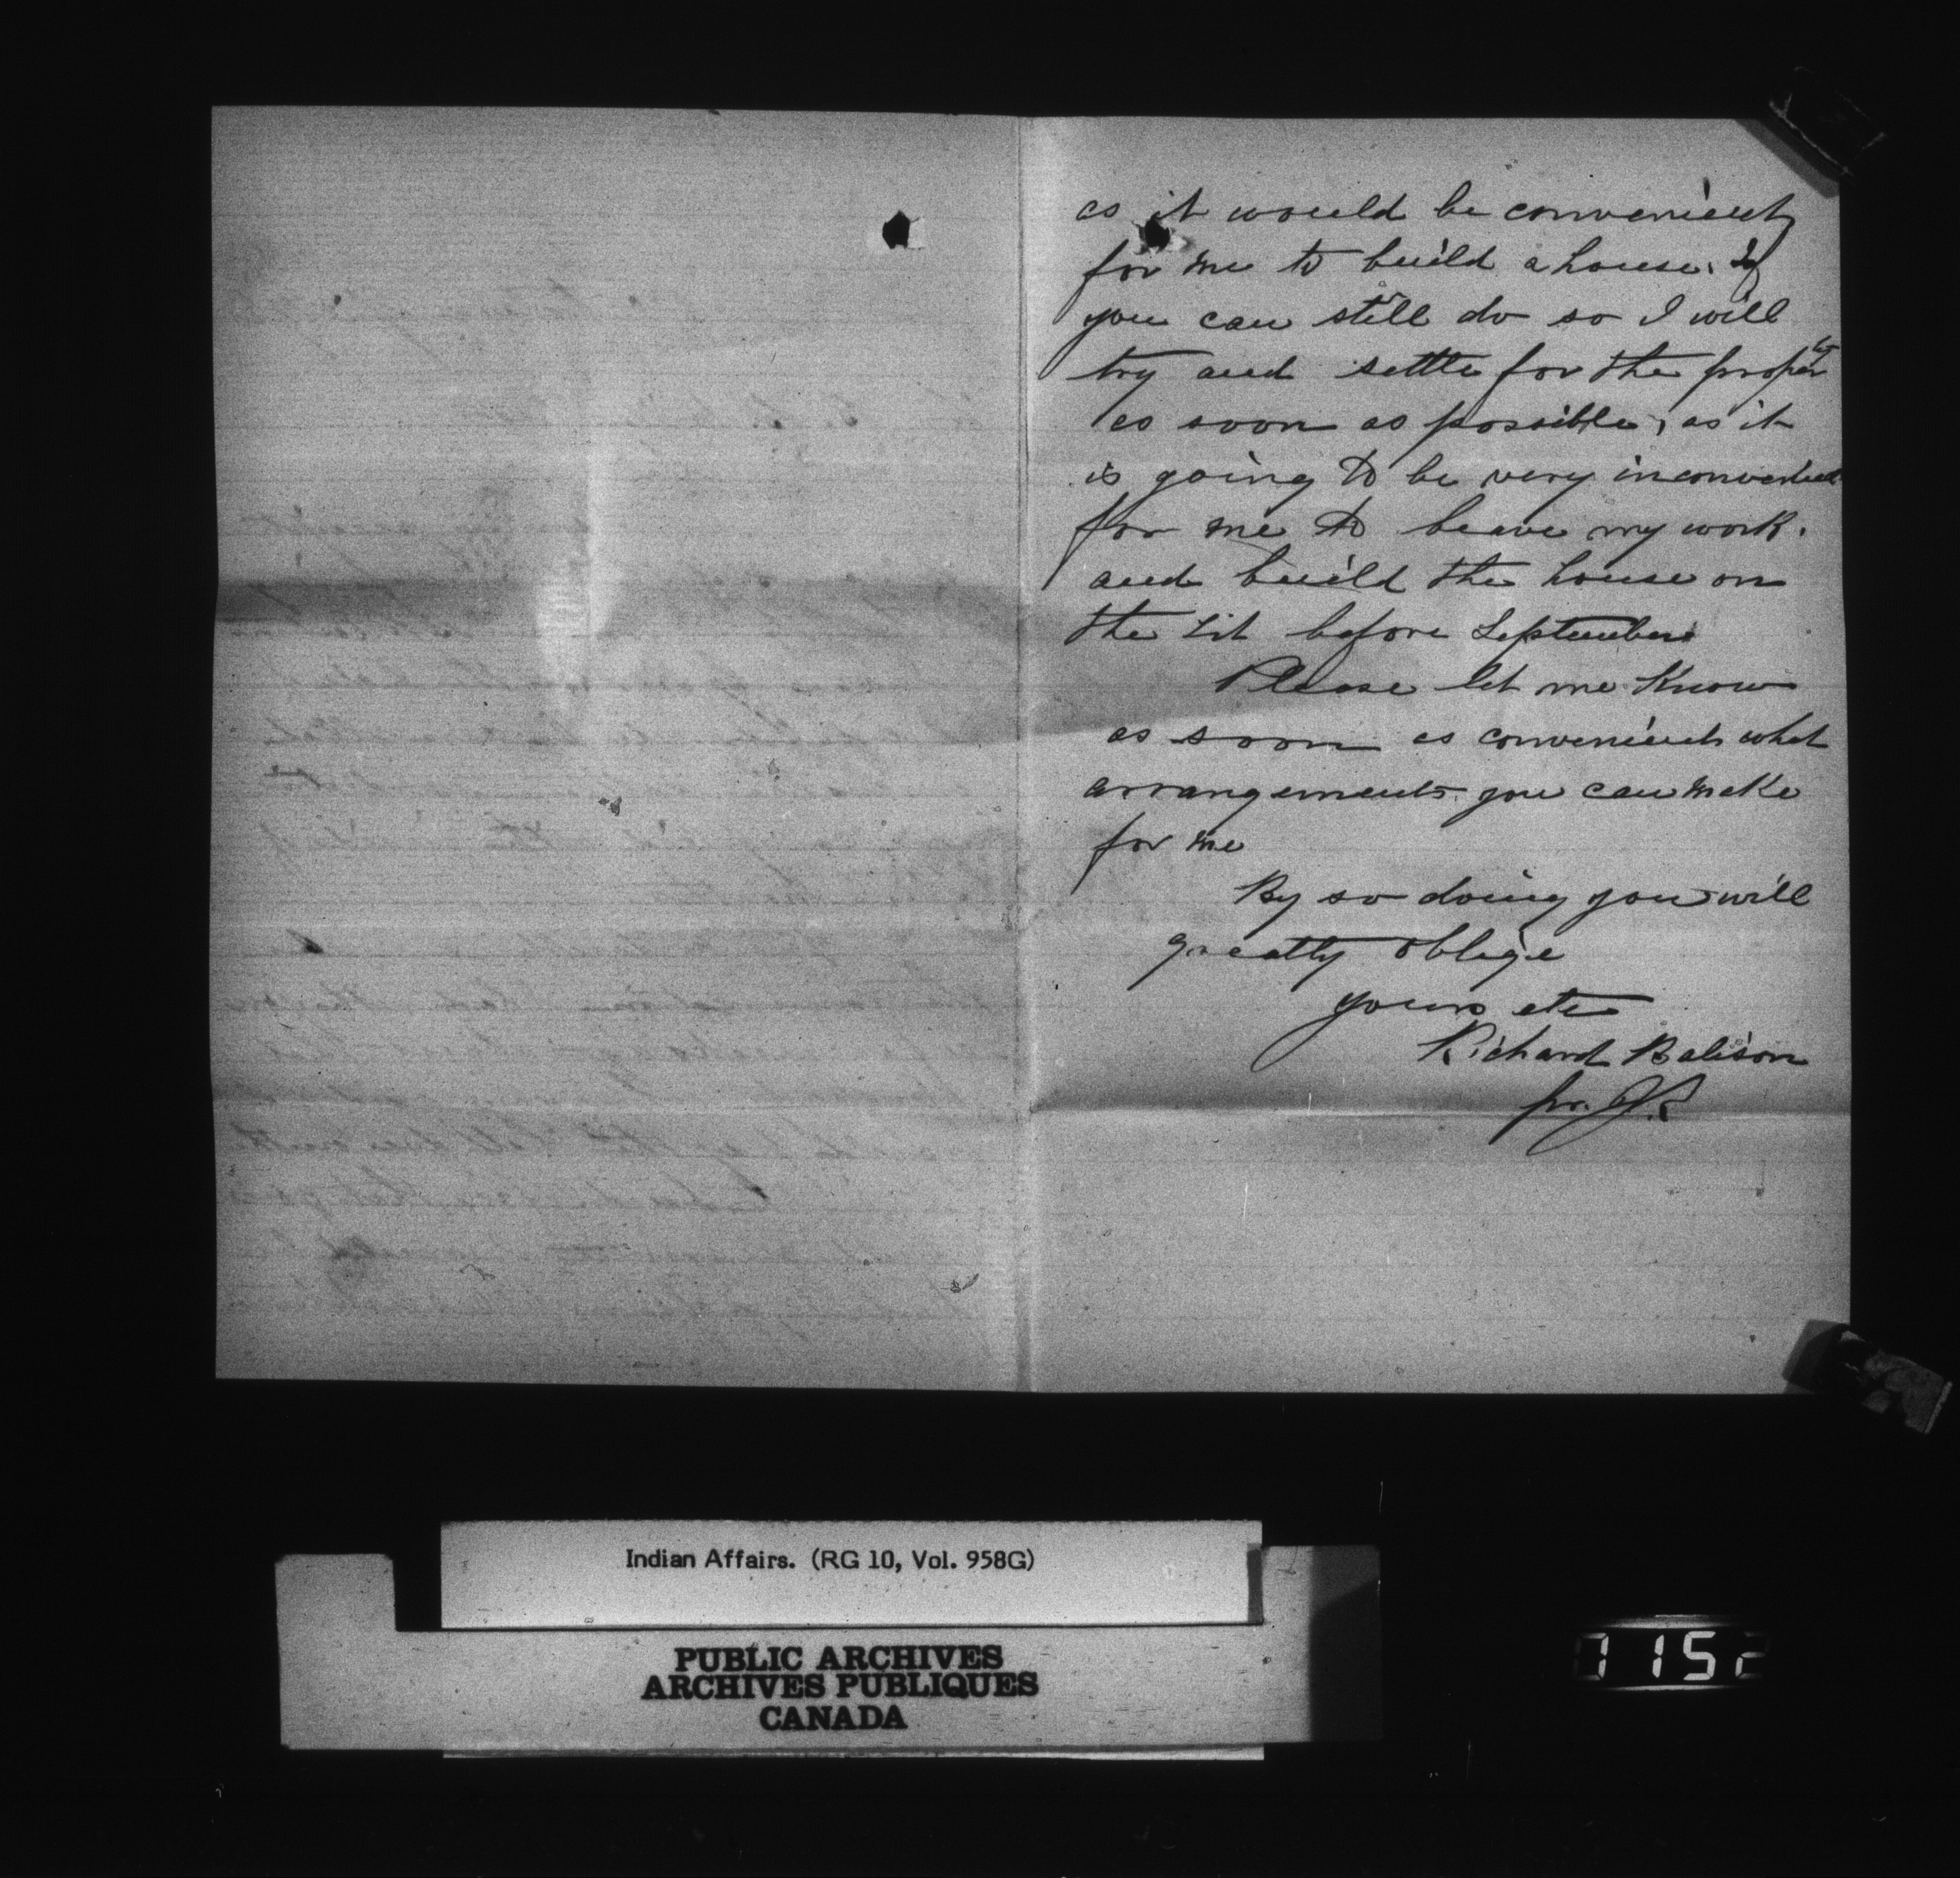 as it would be convenient
for me to build a house. If
you can still do so I will
try and settle for the property
as soon as possible, as it
is going to be very inconvenient
for me to leave my work.
and build the house on
the lot before September
Please let me know
as soon as convenient what
arrangements you can make
for me
By so doing you will
greatly oblige
yours etc
Richard Balison
pr. J.R
Indian Affairs. (RG 10, Vol. 958G)
PUBLIC ARCHIVES
ARCHIVES PUBLIQUES
CANADA
1152